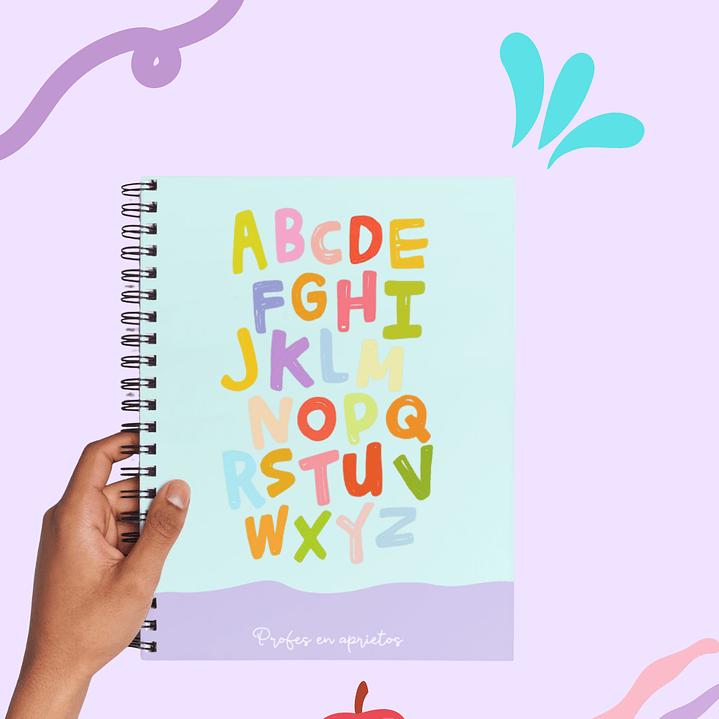 ABCDE
FGHI
JKLM
NOPQ
RSTUV
WXYZ
Profes en aprietos